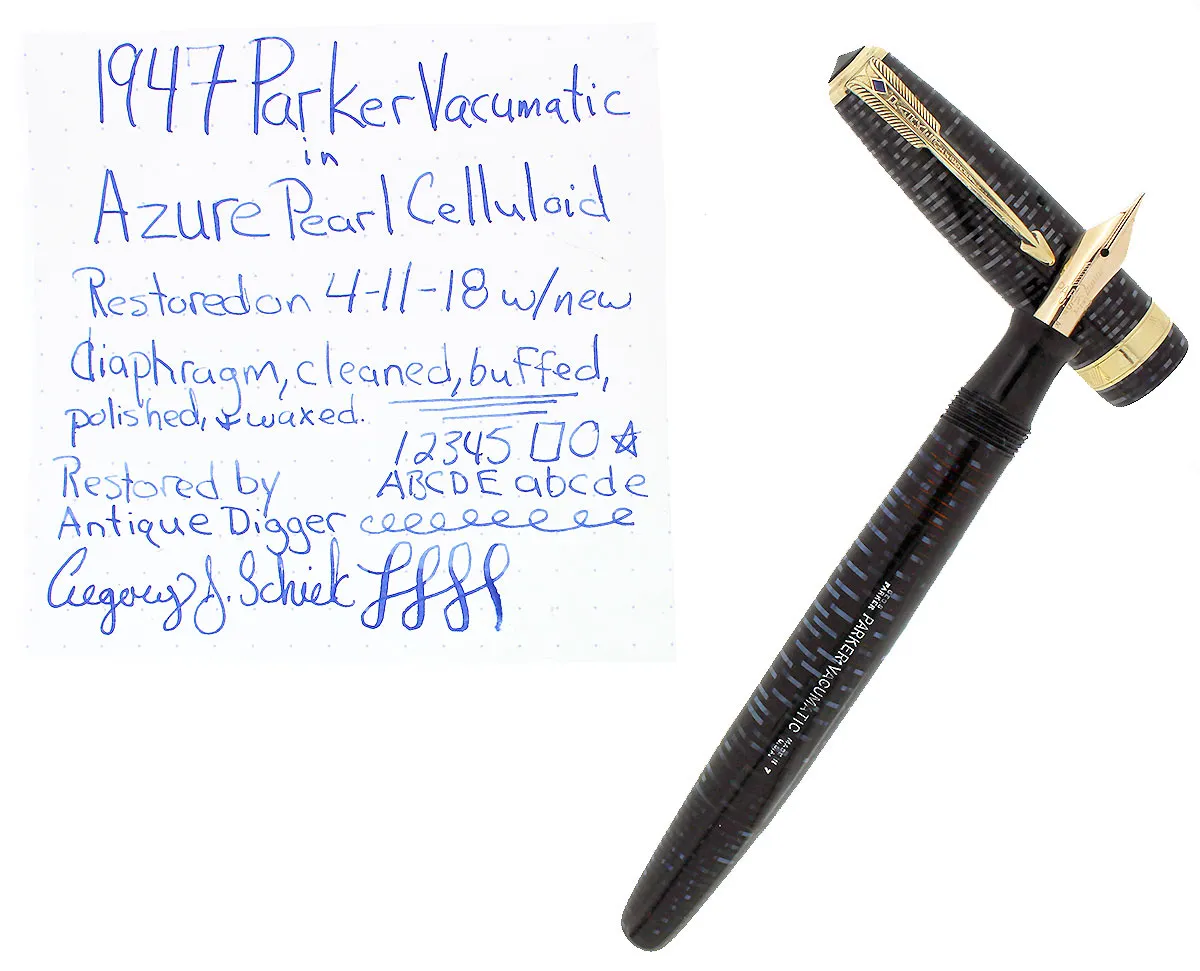 1947 Parker Vacumatic
in
Azure Pearl Celluloid
Restored on 4-11-18 w/new
diaphragm, cleaned, buffed,
polished, & waxed.
12345 □○☆
Restored by
ABCDE abcde
Antique Digger
Gregory J. Schiek
PARKER
PARKER VACUMATIC
MADE IN
U.S.A.
7